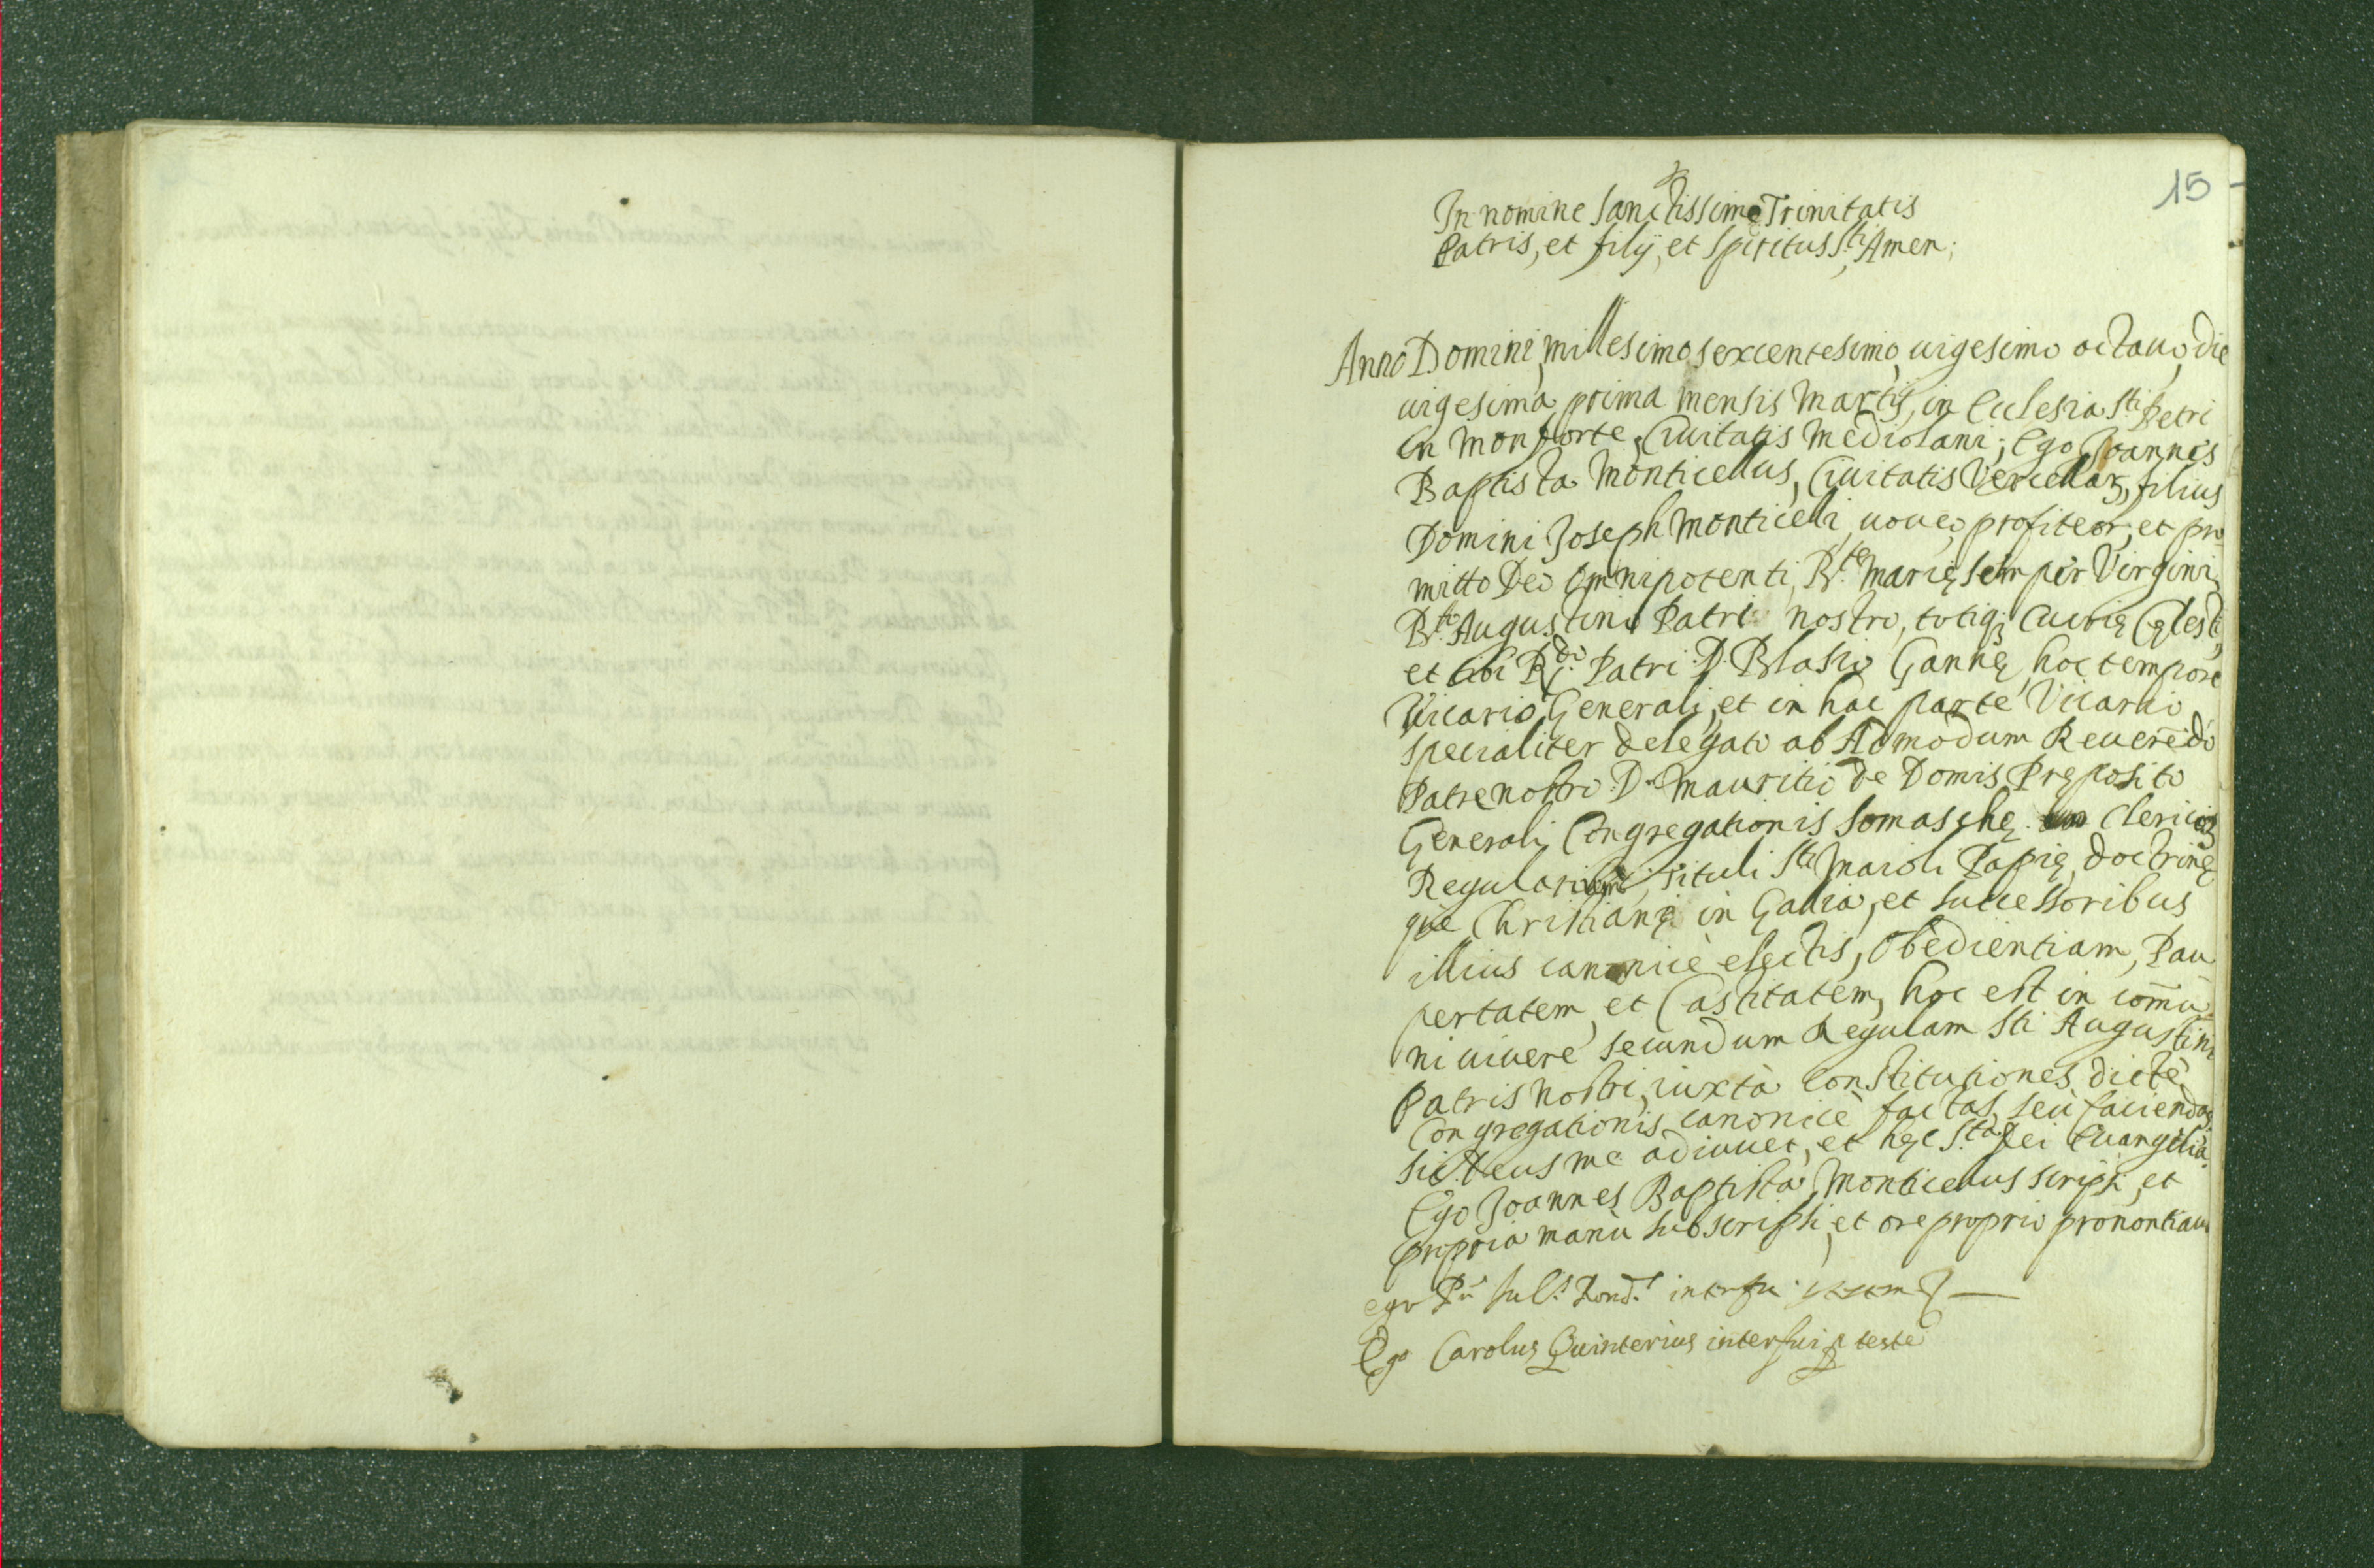 15
In nomine Sanctissimę Trinitatis
Patris, et filij, et Spiritus Sti, Amen;
Anno Domini, millesimo sexcentesimo, uigesimo octauo, die
uigesima prima mensis Martij, in Eclesia Sti Petri
in Monforte, Ciuitatis Mediolani; Ego Joannes
Baptista Monticellus, Ciuitatis Vercellarꝫ, filius
Domini Joseph Monticelli, uoueo, profiteor, et pro
mitto Deo Omnipotenti, B.te Marię semper Virgini,
B.to Augustino Patri nostro, totiqꝫ Curię Cęlesti,
et tibi R.do Patri D. Blasio Gannę hoc tempore
Vicario Generali, et in hac parte Vicario
specialiter delegato ab Admodum Reuerēdo
Patre nostro D. Mauritio de Domis Pręposito
Generali Congregationis Somaschę Clericoꝝ
Regularium, tituli Sti Maioli Papię, doctrinę
que Christianę in Gallia, et successoribus
illius canonicè electis, Obedientiam, Pau
pertatem, et Castitatem, hoc est in comū
ni uiuere secundum Regulam Sti Augustini
Patris nostri, iuxtà Constitutiones dictę
Congregationis canonicè factas, seù faciendas,
sic Deus me adiuuet, et hęc S.ta Dei Euangelia.
Ego Joannes Baptista Monticellus scripsi, et
propria manu subscripsi, et ore proprio pronontiaui
ego interfui
Ego Carolus Quinterius interfui p teste